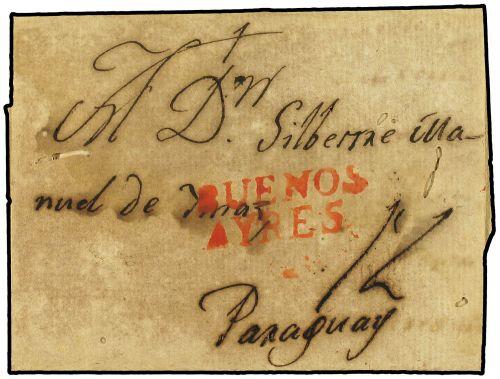 A Dn Silberrie Ma-
nuel de Ynaz
BUENOS
AYRES
Paraguay